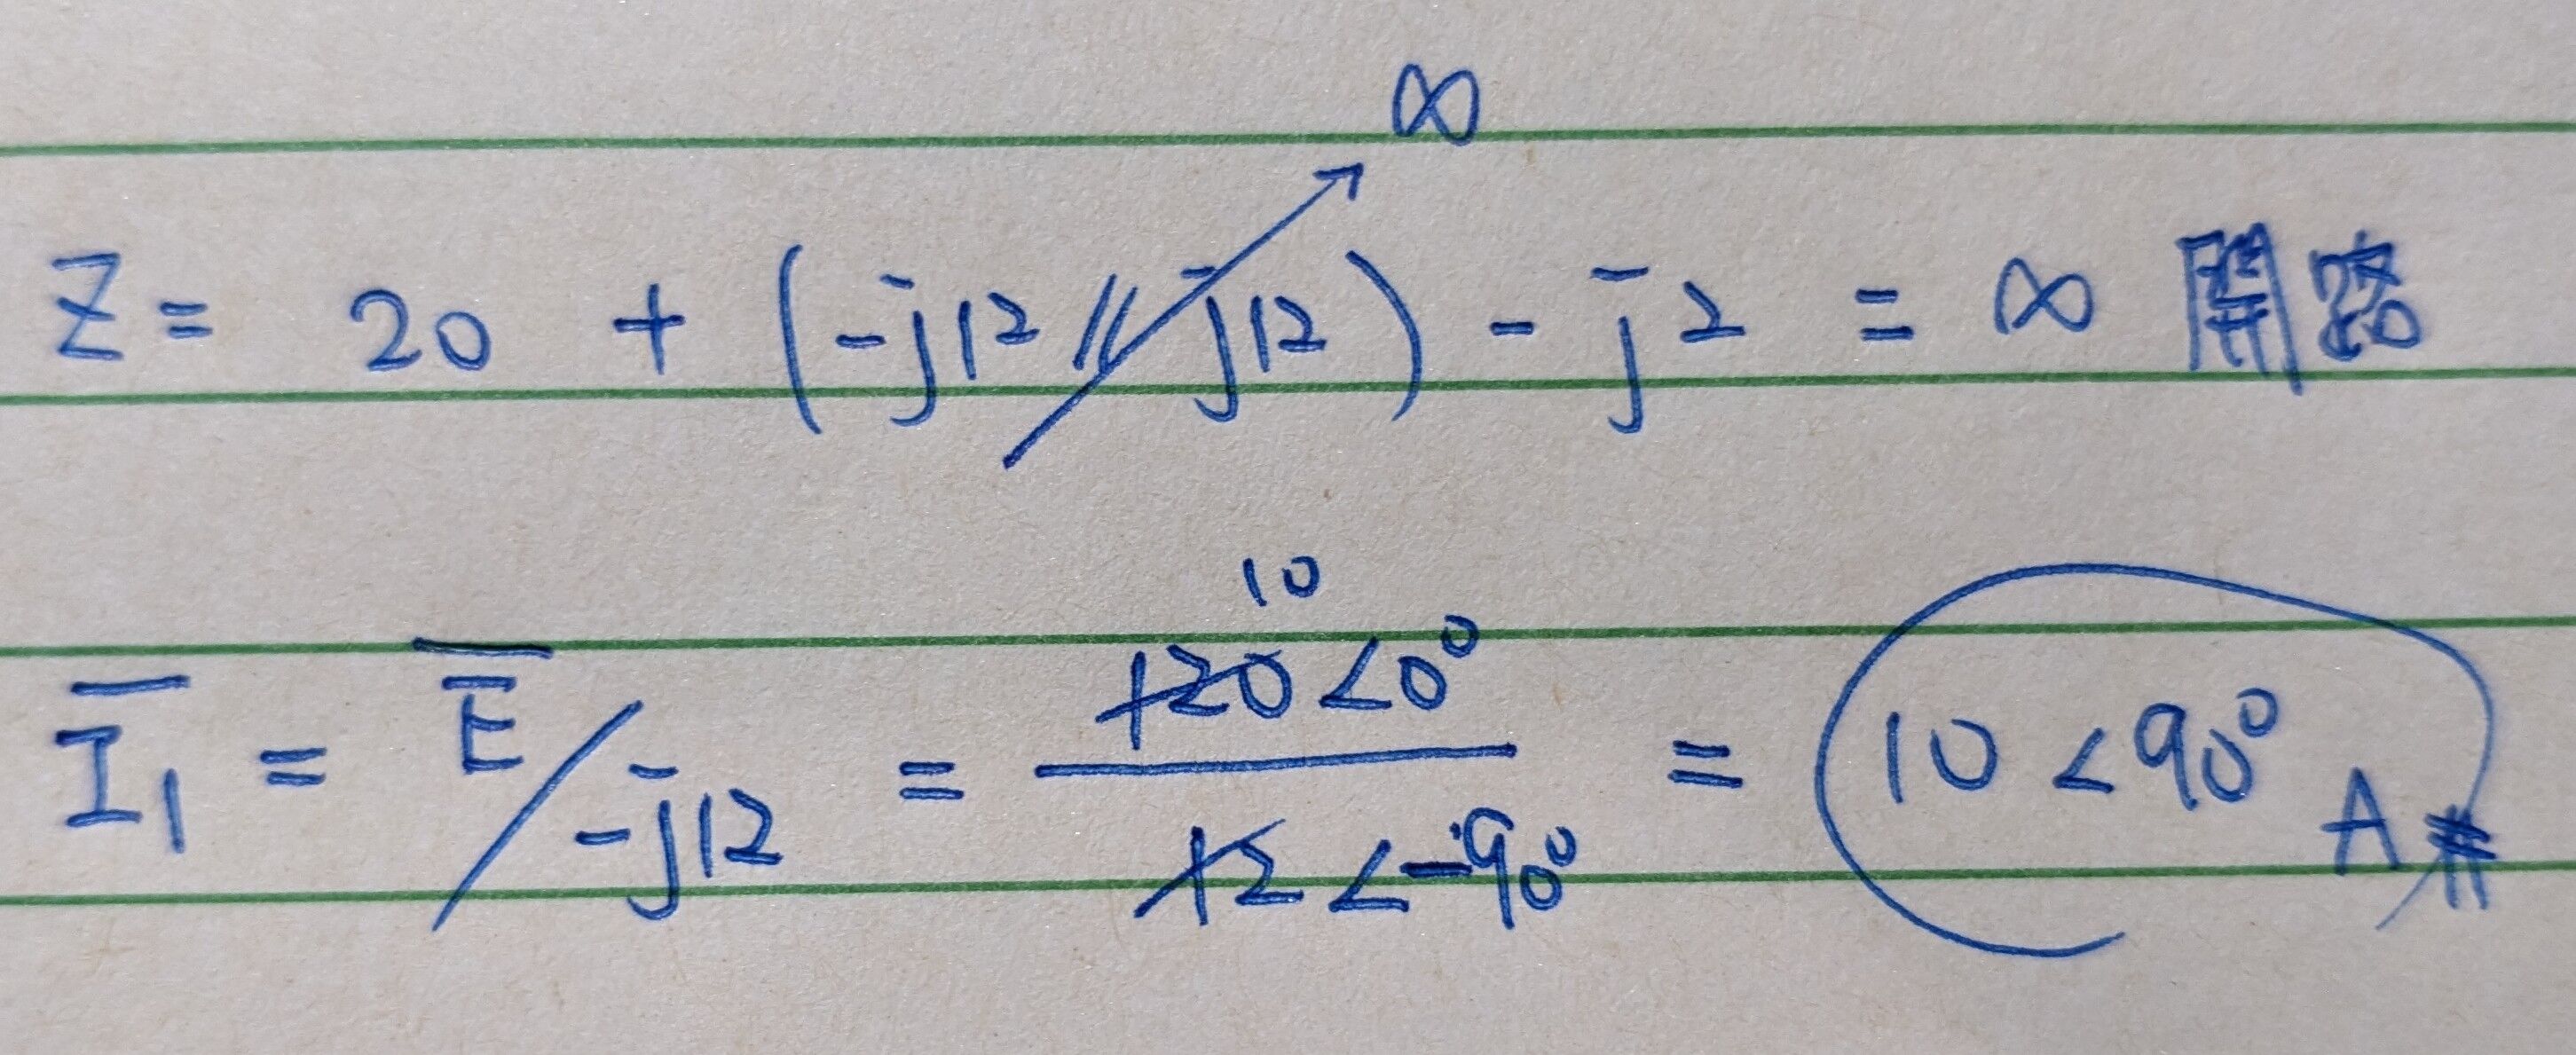 ∞
Z = 20 + (-j̄12 // j̄12) - j̄2 = ∞ 開路
10
Ī₁ = Ē / -j̄12 = 120<0° / 12<-90° = 10<90° A #